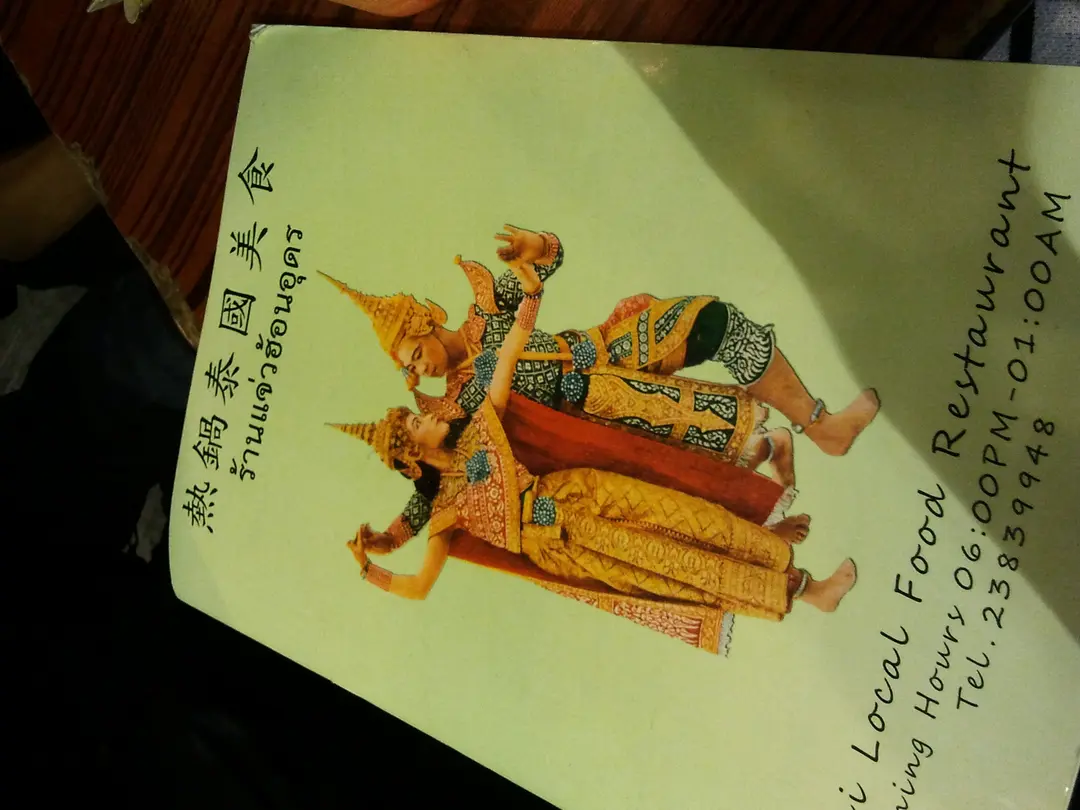 熱鍋泰國美食
ร้านแจ่วฮ้อนอุดร
i Local Food Restaurant
ning Hours 06:00PM-01:00AM
Tel. 23839948